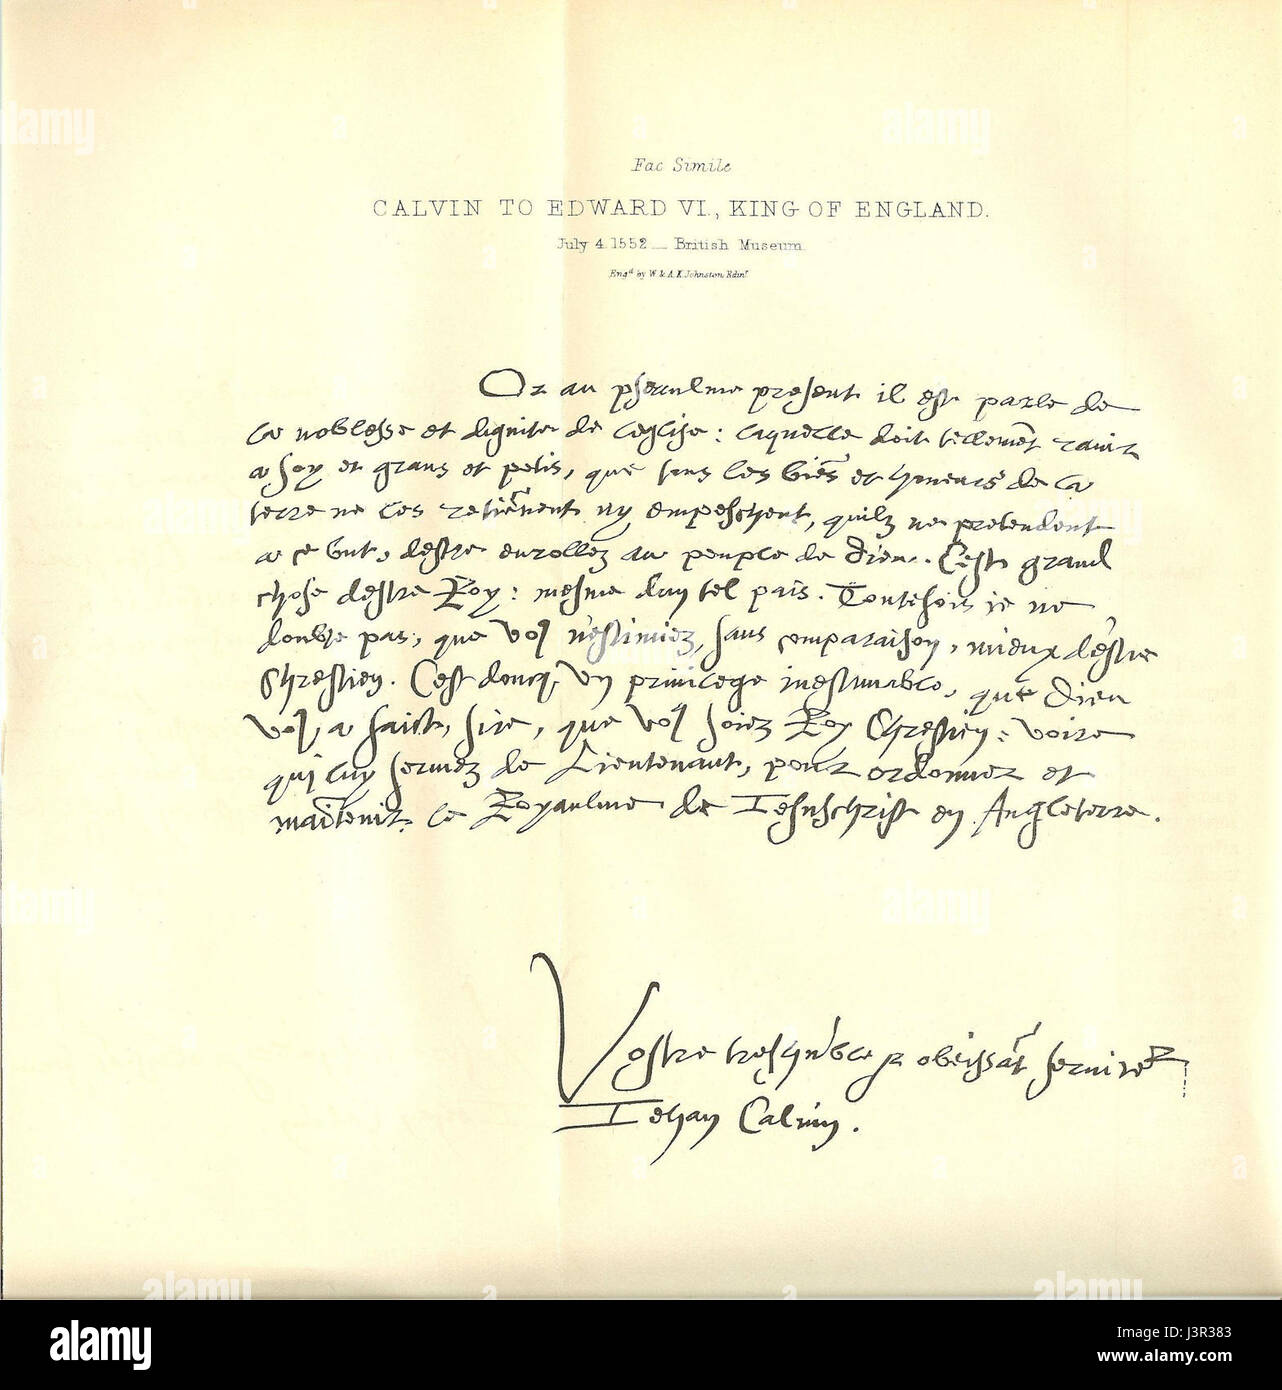 Fac Simile
CALVIN TO EDWARD VI., KING OF ENGLAND.
July 4 1552 — British Museum
Engd by W. & A. K. Johnston, Edinr
Or au pseaulme present il est parle de
la noblesse et dignite de leglise: laquelle doit tellement ravir
a soy et grans et petis, que tous les biēs et honeurs de la
terre ne les retiēnent ny empeschent, quilz ne pretendent
a ce but, destre enrollez au peuple de Dieu. Cest grand
chose destre Roy: mesme dun tel pais. Toutesfois ie ne
doubte pas, que vos nestimiez, sans comparaison, mieux destre
Chrestien. Cest doncq, un privilege inestimable, que Dieu
vos a faict, sire, que vos soiez Roy Chrestien: voire
qui luy servez de Lieutenant, pour ordonner et
maītenir le Royaulme de Iesuschrist en Angleterre.
Vostre treshūble & obeissāt serviter
Iehan Calvin.
alamy
J3R383
www.alamy.com